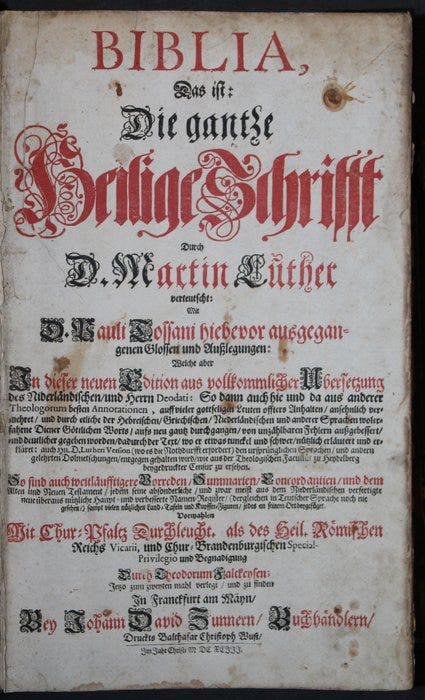 BIBLIA,
Das ist:
Die gantze
Heilige Schrifft
Durch
D. Martin Luther
verteutscht:
Mit
D. Pauli Tossani hiebevor ausgegan-
genen Glossen und Außlegungen:
Welche aber
In dieser neuen Edition aus vollkommlicher Ubersetzung
des Niderländischen/und Herrn Deodati: So dann auch hie und da aus anderer
Theologorum besten Annotationen, auff vieler gottseligen Leuten offters Anhalten/ ansehnlich ver-
mehret / und durch etliche der Hebreischen/ Griechischen/ Niederländischen und anderer Sprachen woler-
fahrne Diener Göttlichen Worts / aufs neu gantz durchgangen/ von unzählbaren Fehlern außgebessert/
und deutlicher gegeben worden/ dadurch der Text/ wo er etwas tunckel und schwer/ nützlich erläutert und er-
kläret: auch D. Luthers Version (wo es die Nothdurfft erfordert) den ursprünglichen Sprachen/ und andern
gelehrten Dolmetschungen/ entgegen gehalten wird/ wie aus der Theologischen Facultät zu Heydelberg
beygedruckter Censur zu ersehen.
So sind auch weitläufftigere Vorreden/ Summarien/ Concordantien/ und dem
Alten und Neuen Testament / jedem seine absönderliche / und zwar meist aus dem Niederländischen verfertigte
neue überaus nützliche Haupt- und verbesserte Namen-Register/ (dergleichen in Teutscher Sprache noch nie
gesehen/) sampt vielen nützlichen Land-Tafeln und Kupffer-Figuren/ jedes an seinem Ort beygefüget.
Vorstehlen
Mit Chur-Pfaltz Durchleucht. als des Heil. Römischen
Reichs Vicarii, und Chur-Brandenburgischen Special-
Privilegio und Begnadigung
Durch Theodorum Falckeysen:
Jetzo zum zweyten mahl verlegt / und zu finden
In Franckfurt am Mäyn/
Bey Johann David Zunnern/ Buchhändlern/
Druckts Balthasar Christoph Wust/
Im Jahr Christi M DC XCIII.